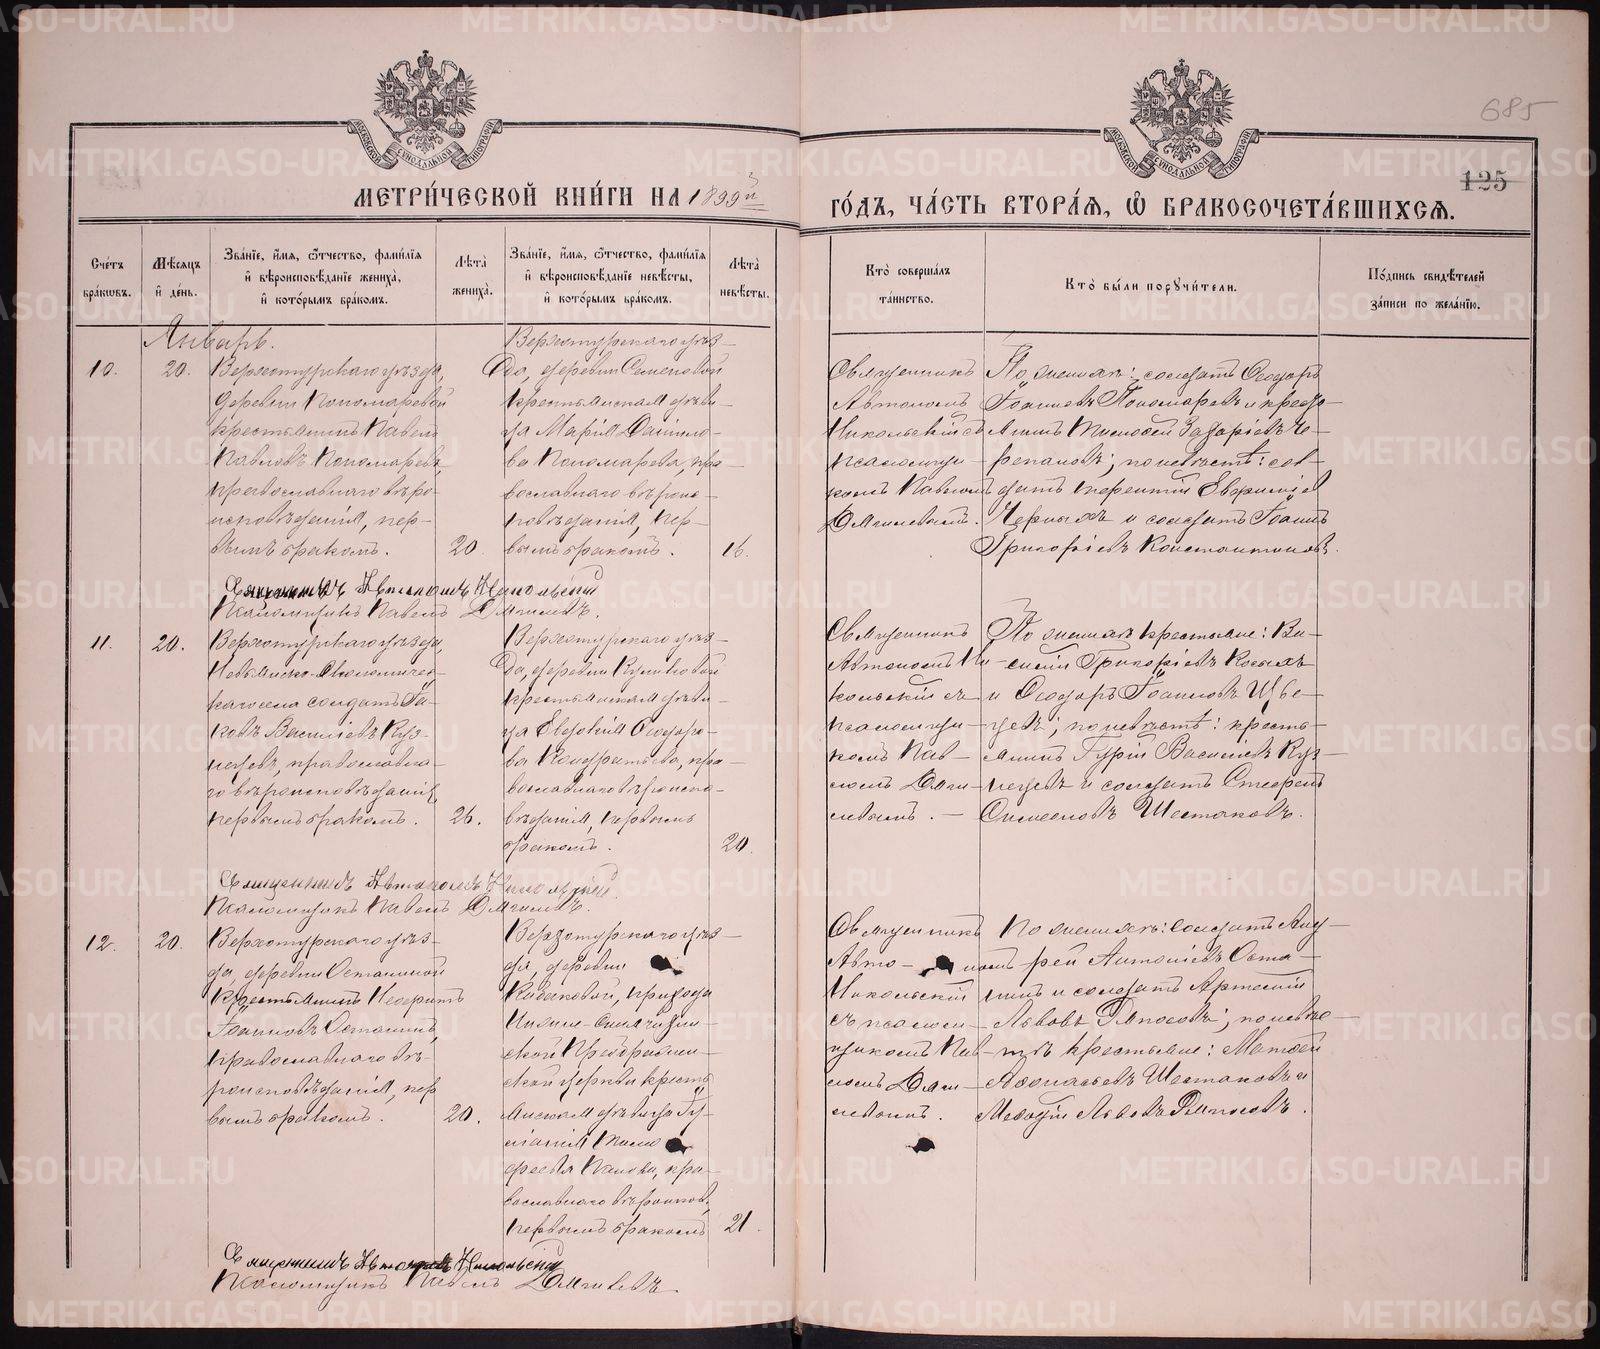 685
125
МЕТРИ́ЧЕСКОЙ КНИ́ГИ НА 1899й
ГО́ДЪ, ЧА́СТЬ ВТОРА́Ѧ, Ѽ БРАКОСОЧЕТА́ВШИХСѦ.
Сче́тъ бра́кѡвъ.
Мѣ́сѧцъ и҆ де́нь.
Зва́нїе, и҆́мѧ, ѻ҆́тчество, фами́лїѧ
и҆ вѣроисповѣ́данїе жениха̀,
и҆ кото́рымъ бра́комъ.
Лѣ́та̀ жениха̀.
Зва́нїе, и҆́мѧ, ѻ҆́тчество, фами́лїѧ
и҆ вѣроисповѣ́данїе невѣ́сты,
и҆ кото́рымъ бра́комъ.
Лѣ́та̀ невѣ́сты.
Кто̀ соверша́лъ
та́инство.
Кто̀ бы́ли порꙋчи́тели.
По́дпись свидѣ́телей
за́писи по жела́нїю.
Январь.
10.
20.
Верхотурскаго уѣзда,
деревни Пономаревой
крестьянинъ Павелъ
Павловъ Пономаревъ,
православнаго вѣро-
исповѣданія, пер-
вымъ бракомъ.
20.
Верхотурскаго уѣз-
да, деревни Семеновой
крестьянская дѣви-
ца Марія Данило-
ва Пономарева, пра-
вославнаго вѣроис-
повѣданія, пер-
вымъ бракомъ.
16.
Священникъ
Автономъ
Никольскій съ
псаломщи-
комъ Павломъ
Дягилевымъ.
По женихѣ: солдатъ Ѳеодоръ
Іоанновъ Пономаревъ и кресть-
янинъ Тимоѳей Захаріевъ Че-
репановъ; по невѣстѣ: сол-
датъ Терентій Евѳиміев
Черныхъ и солдатъ Іоаннъ
Григоріевъ Константиновъ.
Священникъ Автономъ Никольскій
Псаломщикъ Павелъ Дягилевъ.
11.
20.
Верхотурскаго уѣзда,
Невьянско-
каго села солдатъ Іа-
ковъ Васильевъ Куз-
нецовъ, православна-
го вѣроисповѣданія,
первымъ бракомъ.
26.
Верхотурскаго уѣз-
да, деревни Куликовой
крестьянская дѣви-
ца Евдокія Ѳеодоро-
ва Кондратьева, пра-
вославнаго вѣроиспо-
вѣданія, первымъ
бракомъ.
20.
Священникъ
Автономъ Ни-
кольскій съ
псаломщи-
комъ Пав-
ломъ Дяги-
левымъ.
По женихѣ крестьяне: Ва-
силій Григоріевъ Косыхъ
и Ѳеодоръ Іоанновъ Шве-
цовъ; по невѣстѣ: кресть-
янинъ Гурій Васильевъ Куз-
нецовъ и солдатъ Стефанъ
Симеоновъ Шестаковъ.
Священникъ Автономъ Никольскій
Псаломщикъ Павелъ Дягилевъ.
12.
20.
Верхотурскаго уѣз-
да, деревни Останиной
крестьянинъ
Іоанновъ Останинъ,
православнаго вѣ-
роисповѣданія, пер
вымъ бракомъ.
20.
Верхотурскаго уѣз-
да, деревни
Кабаковой, прихода
Нижне-Синячихин-
ской Преображен-
ской церкви кресть
янская дѣвица Іу-
ліанія Тимо
ѳеева Панова, пра-
вославнаго вѣроиспов.
первымъ бракомъ
21.
Священникъ
Авто-номъ
Никольскій
съ псалом-
щикомъ Пав-
ломъ Дяги-
левымъ.
По женихѣ: солдатъ Анд-
рей Антоніевъ Оста-
нинъ и солдатъ Артемій
Львовъ; по невѣс-
тѣ крестьяне: Матѳей
Аѳонасьевъ Шестаковъ и
Меѳодій Львовъ.
Священникъ Автономъ Никольскій
Псаломщикъ Павелъ Дягилевъ.